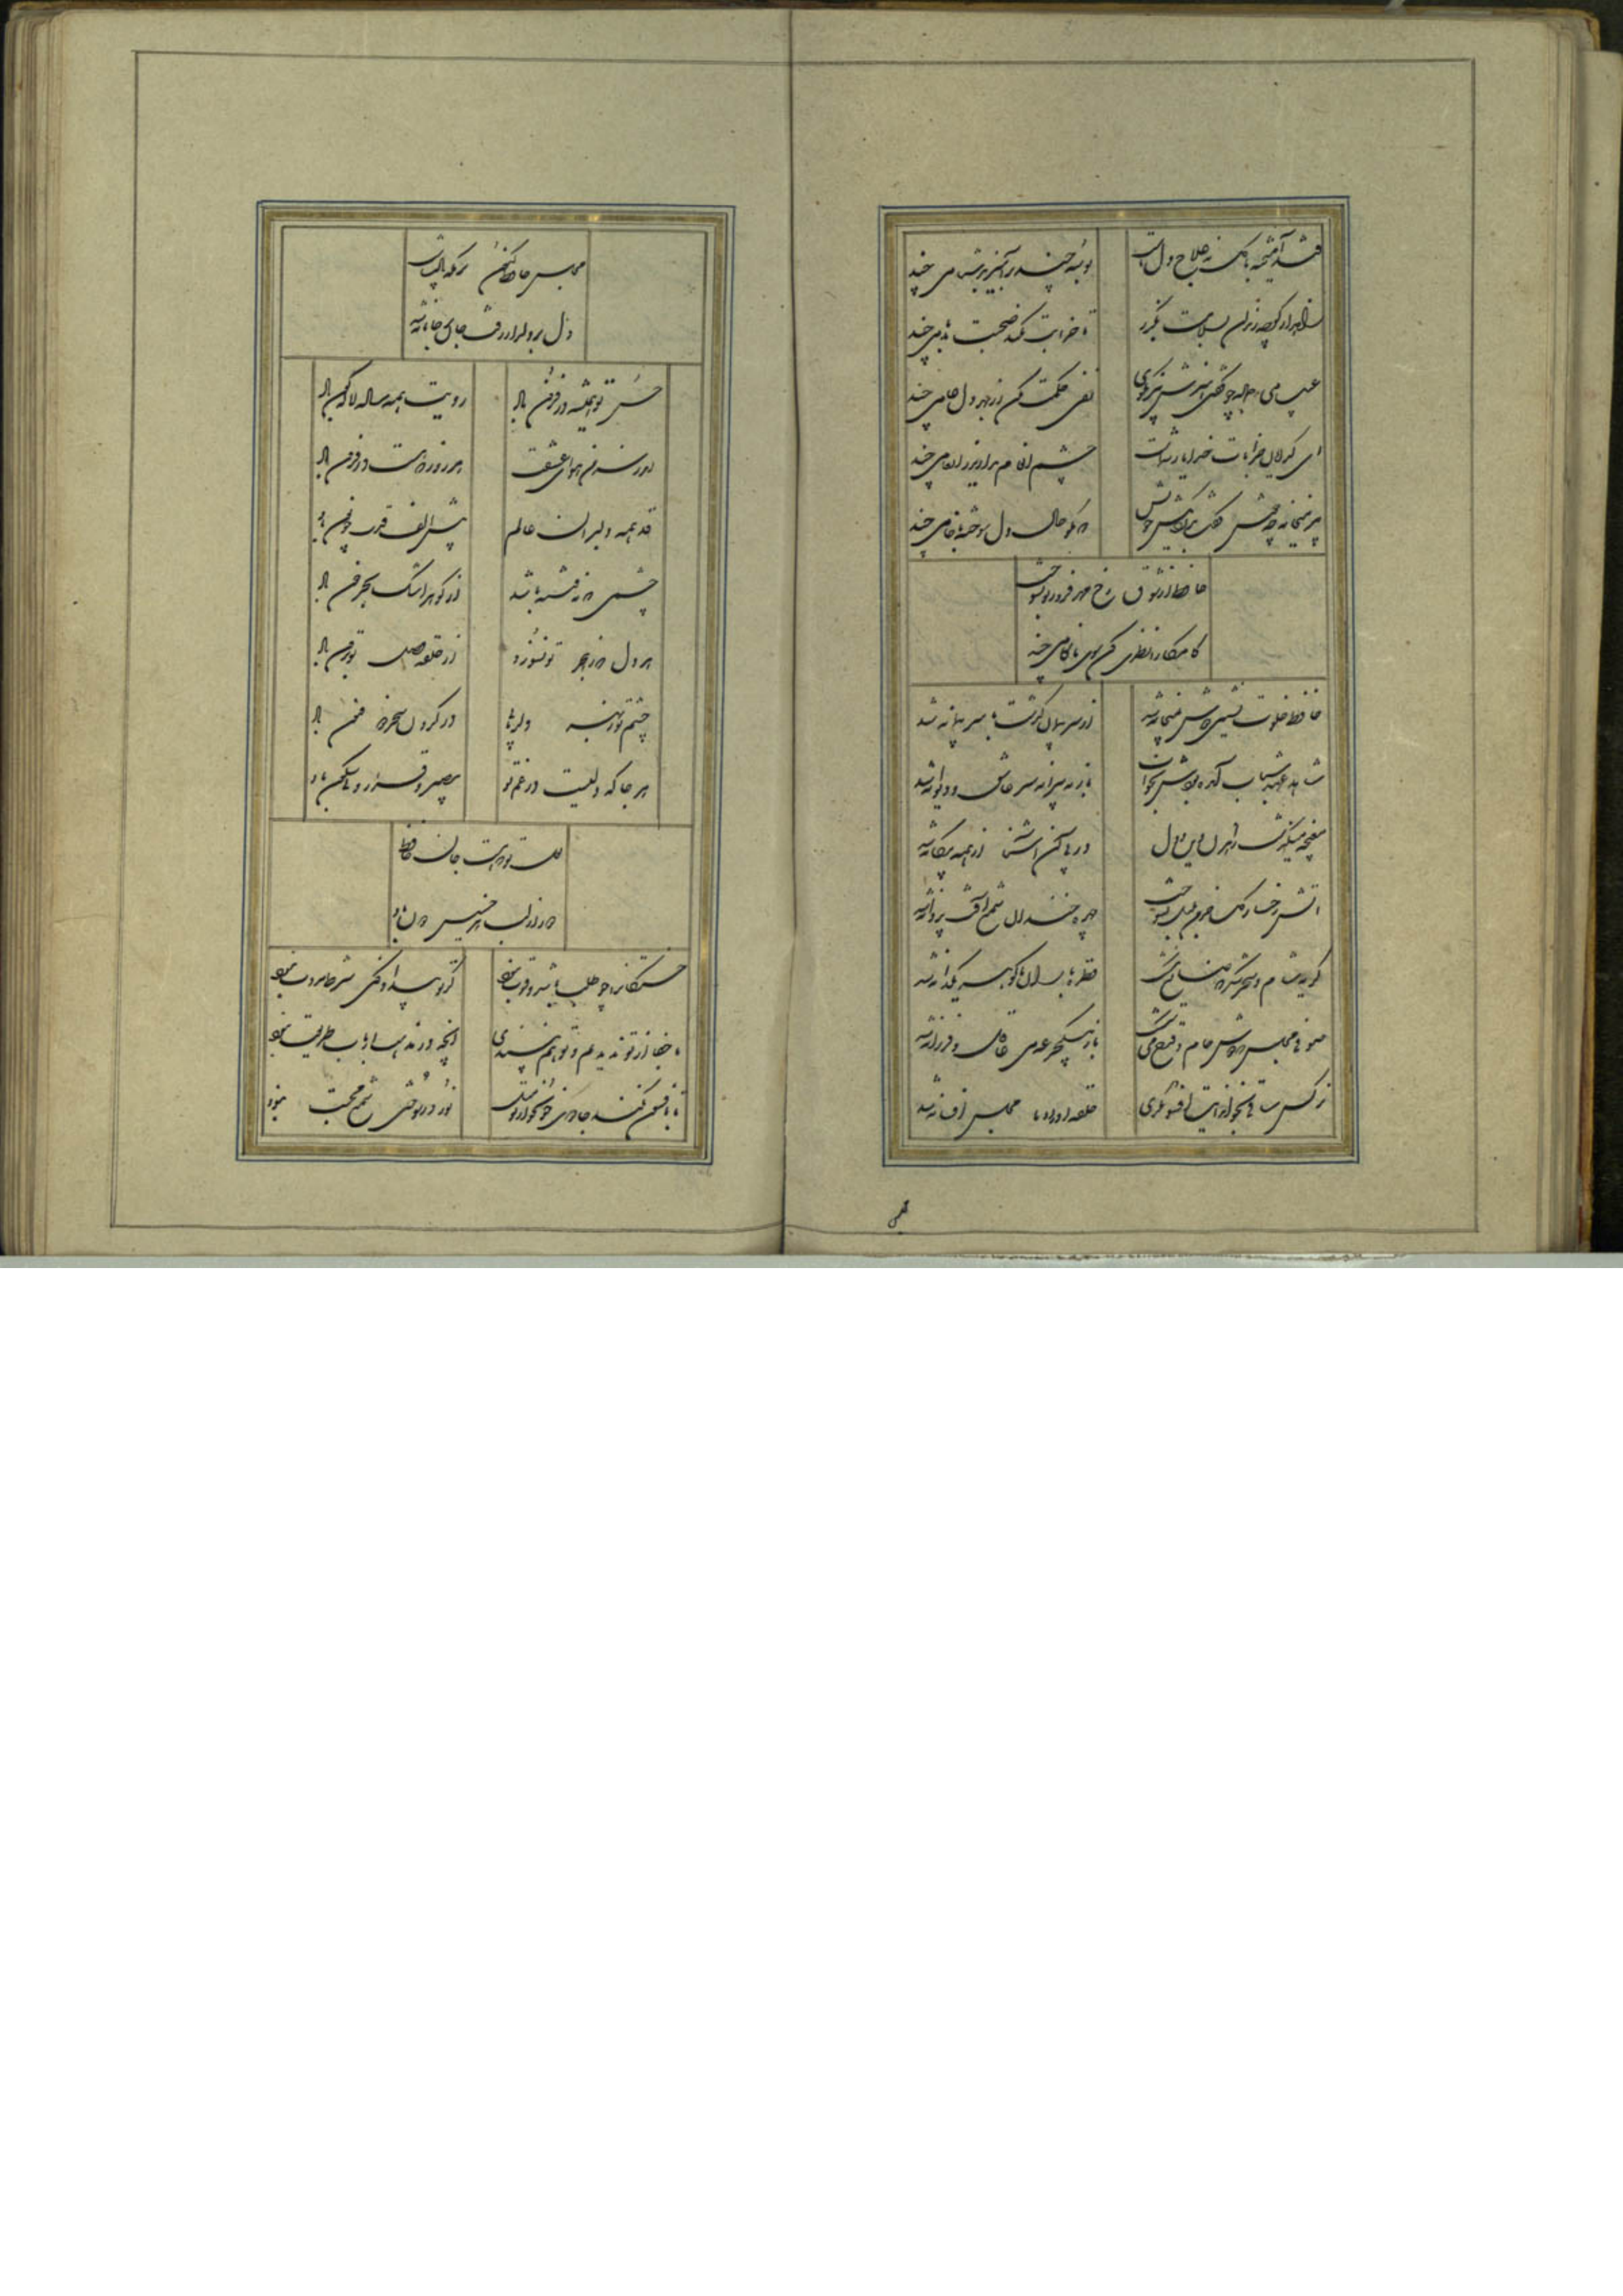 قند آمیخته با گل نه علاج دل ماست بوسه چند برآمیز بدشنامی چند
زاهد از کوچه رندان بسلامت بگذر تا خرابت نکند صحبت بدنامی چند
عیب می جمله چو گفتی هنرش نیز بگوی نفی حکمت مکن از بهر دل عامی چند
ای گدایان خرابات خدا یار شماست چشم انعام مدارید ز انعامی چند
پیر میخانه چه خوش گفت بدردی کش خویش که مگو حال دل سوخته با خامی چند
حافظ از شوق رخ مهر فروز تو بسوخت
کامکارا نظری کن سوی ناکامی چند
حافظ خلوت نشین دوش بمیخانه شد از سر پیمان گذشت با سر پیمانه شد
شاهد عهد شباب آمده بودش بخواب باز به پیرانه سر عاشق و دیوانه شد
مغبچه میگذشت راهزن دین و دل در پی آن آشنا از همه بیگانه شد
آتش رخسار گل خرمن بلبل بسوخت چهره خندان شمع آفت پروانه شد
گریه شام و سحر شکر که ضایع نگشت قطره باران ما گوهر یکدانه شد
صوفی مجلس که دوش جام و قدح می شکست باز بیک جرعه می عاقل و فرزانه شد
نرگس ساقی بخواند آیت افسونگری حلقه اوراد ما مجلس افسانه شد
مجلس
مجلس حافظ کنون بزمگه پادشاست
دل بر دلدار رفت جان بر جانانه شد
حسن تو همیشه در فزون باد رویت همه ساله لاله گون باد
اندر سر من هوای عشقت هر روز که هست در فزون باد
قد همه دلبران عالم پیش الف قدت چو نون باد
چشمی که نه فتنه باشد از گوهر اشک بحر خون باد
هر دل که ز هجر تو نسوزد از حلقه وصل تو برون باد
چشم تو ز بهر دلربا در کردن سحر ذو فنون باد
هر جا که دلیست در غم تو بی صبر و قرار و بی سکون باد
لعل تو که هست جان حافظ
دور از لب هر خسیس دون باد
خستگان را چو طلب باشد و قوت نبود گر تو بیداد کنی شرط مروت نبود
ما جفا از تو ندیدیم و تو هم نپسندی آنچه در مذهب ارباب طریقت نبود
تا بافسون نکند جادوی نور در سوختن شمع محبت نبود